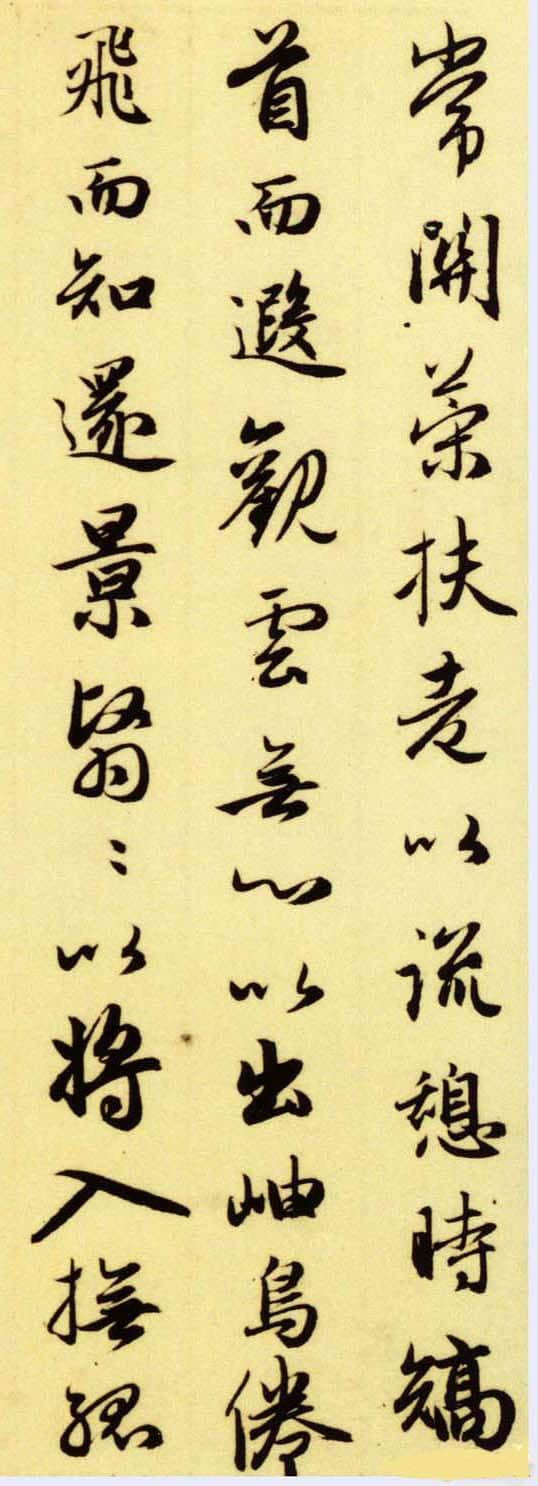 常關策扶老以流憩時矯
首而遐觀雲無心以出岫鳥倦
飛而知還景翳〻以將入撫孤